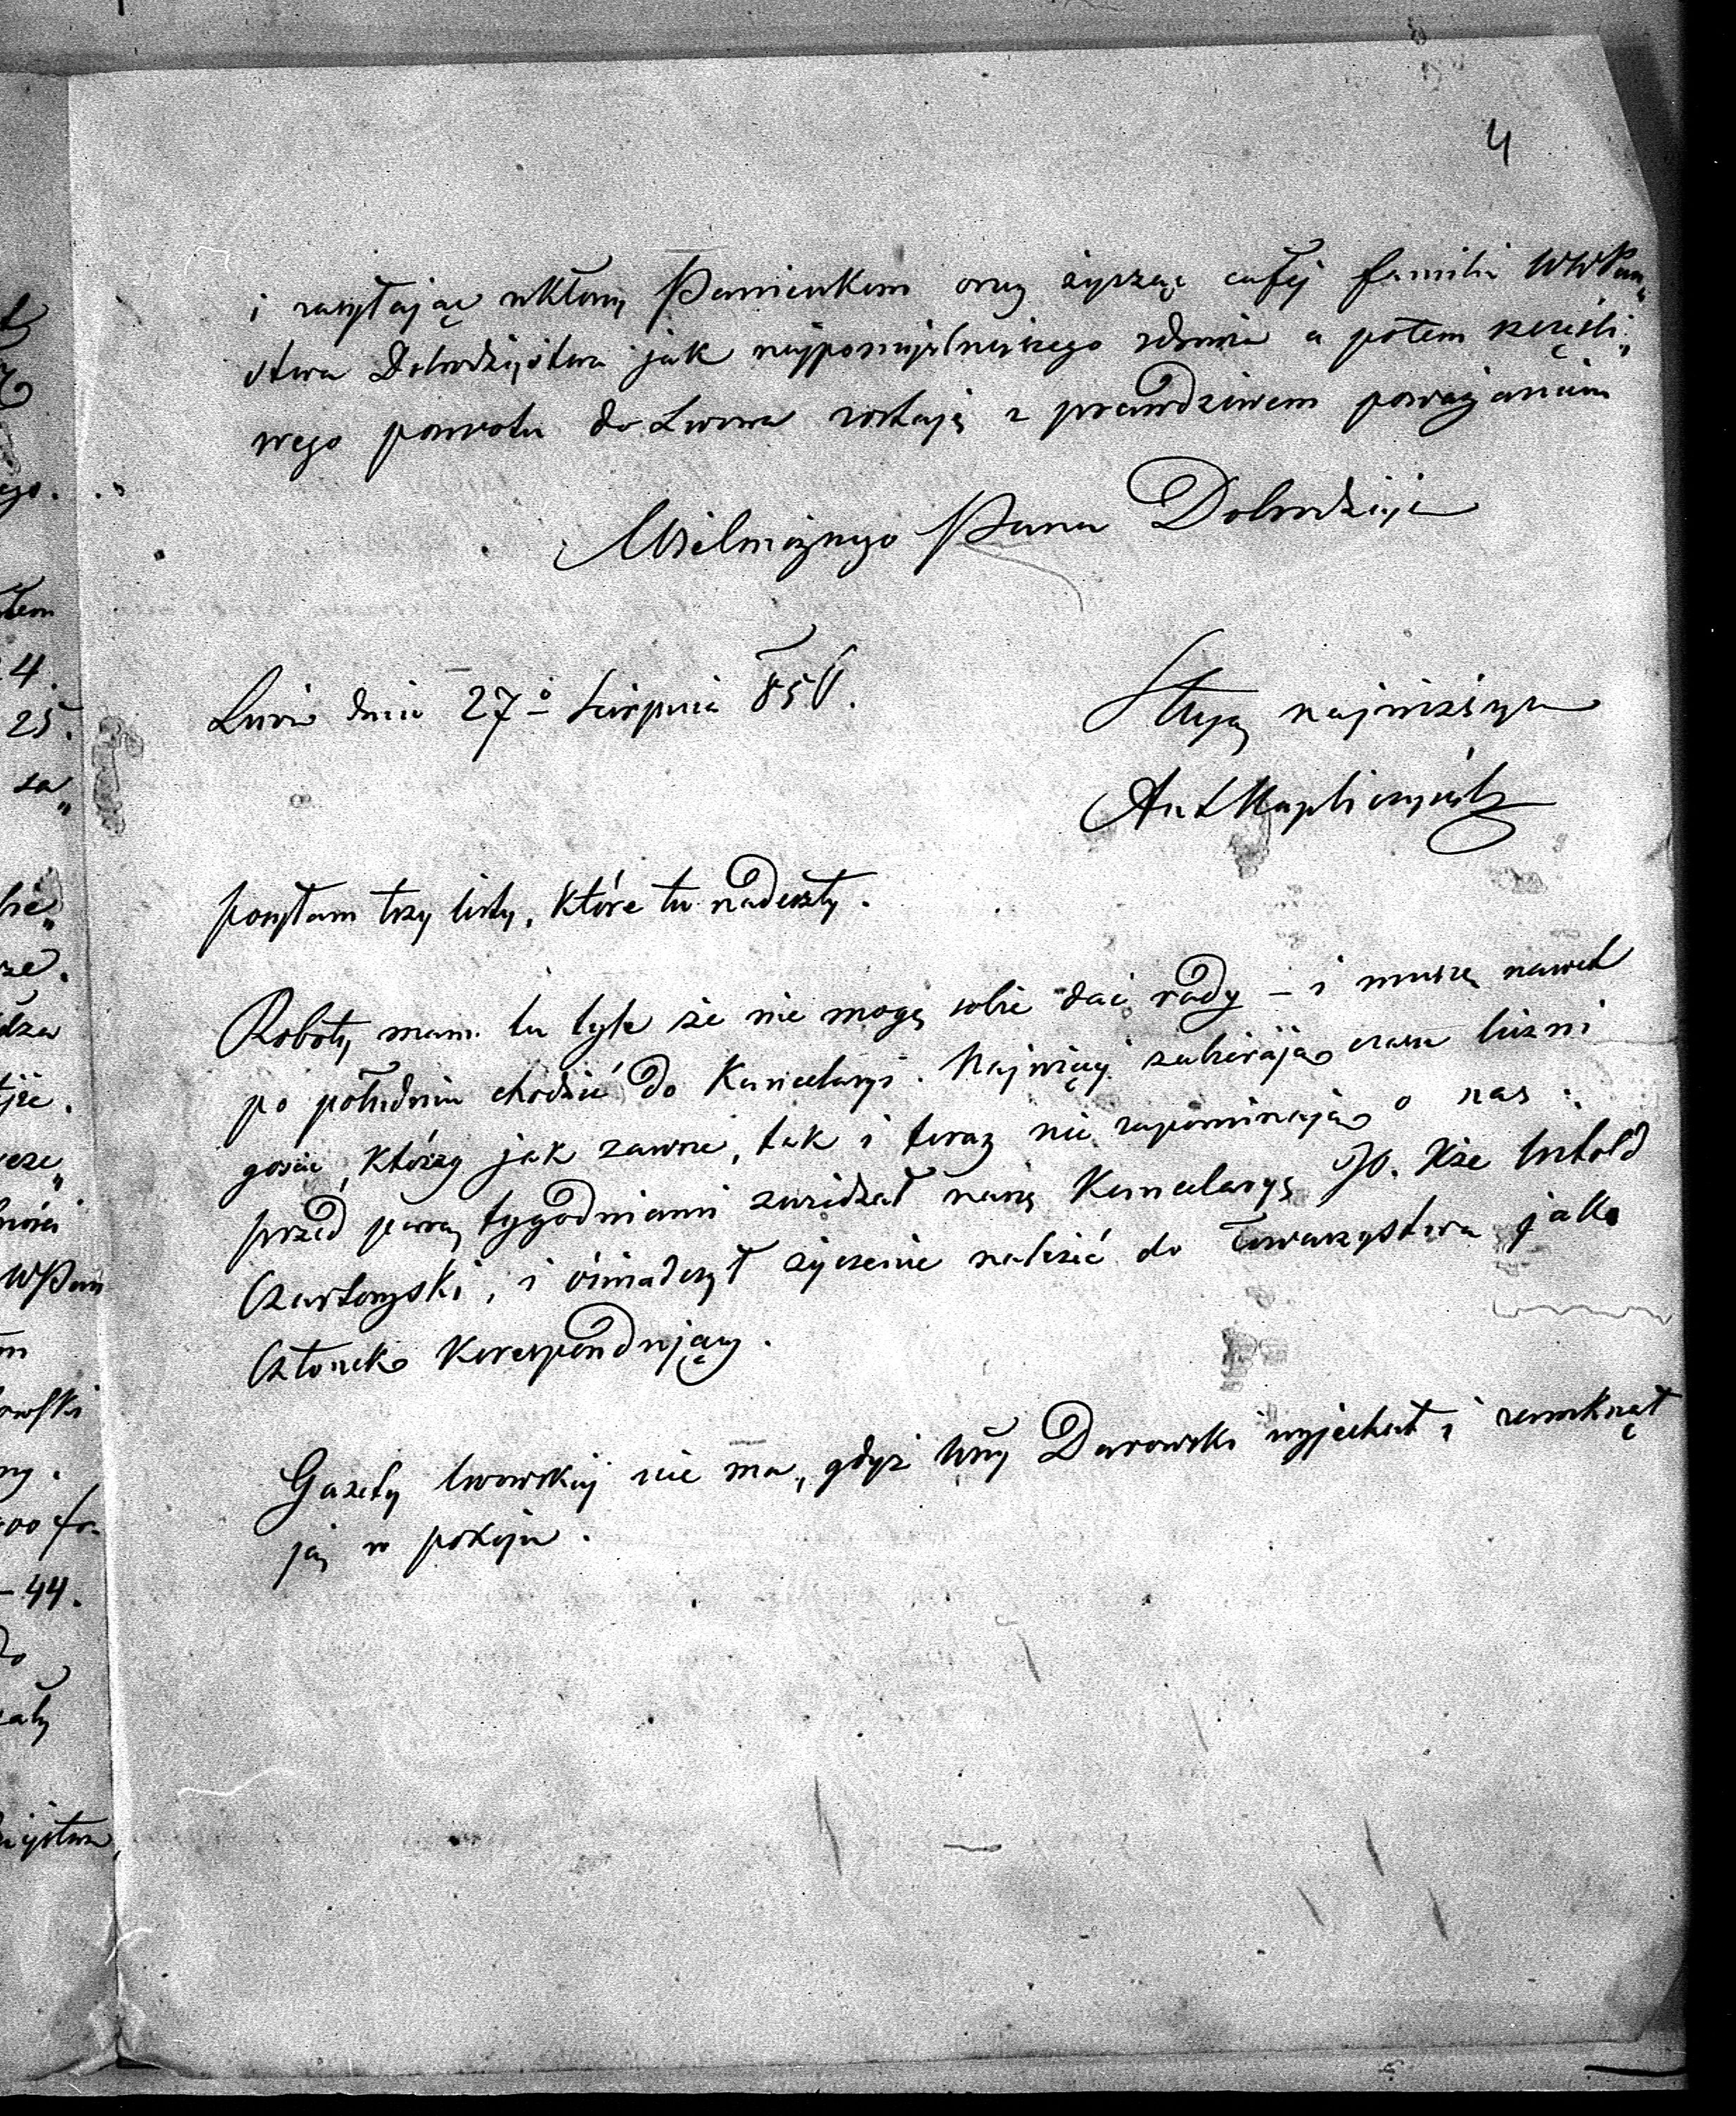 4
i zasyłając ukłony Panienkom oraz życząc całej familii WWPań„
stwa Dobrodziejstwa jak najpomyślniejszego zdrowia a potem szczęśli„
wego powrotu do Lwowa zostaję z prawdziwem poważaniem
Wielmożnego Pana Dobrodzieja
Lwów dnia 27° Sierpnia
Sługą najniższym
Ant
posyłam trzy listy, które tu nadeszły.
Roboty mam tu tyle że nie mogę sobie dać rady – i muszę nawet
po południu chodzić do Kancelaryi. Najwięcej zabierają czasu liczni
goście, którzy jak zawsze, tak i teraz nie zapominają o nas
przed parą tygodniami zwidzał naszą Kancelaryę JO. Xże Witold
Czartoryski, i oświadczył życzenie należić do Towarzystwa jako
Członek Korespondujący.
Gazety lwowskiej nie ma, gdyż Wny Darowski wyjechał i zamknął
ją w pokoju.